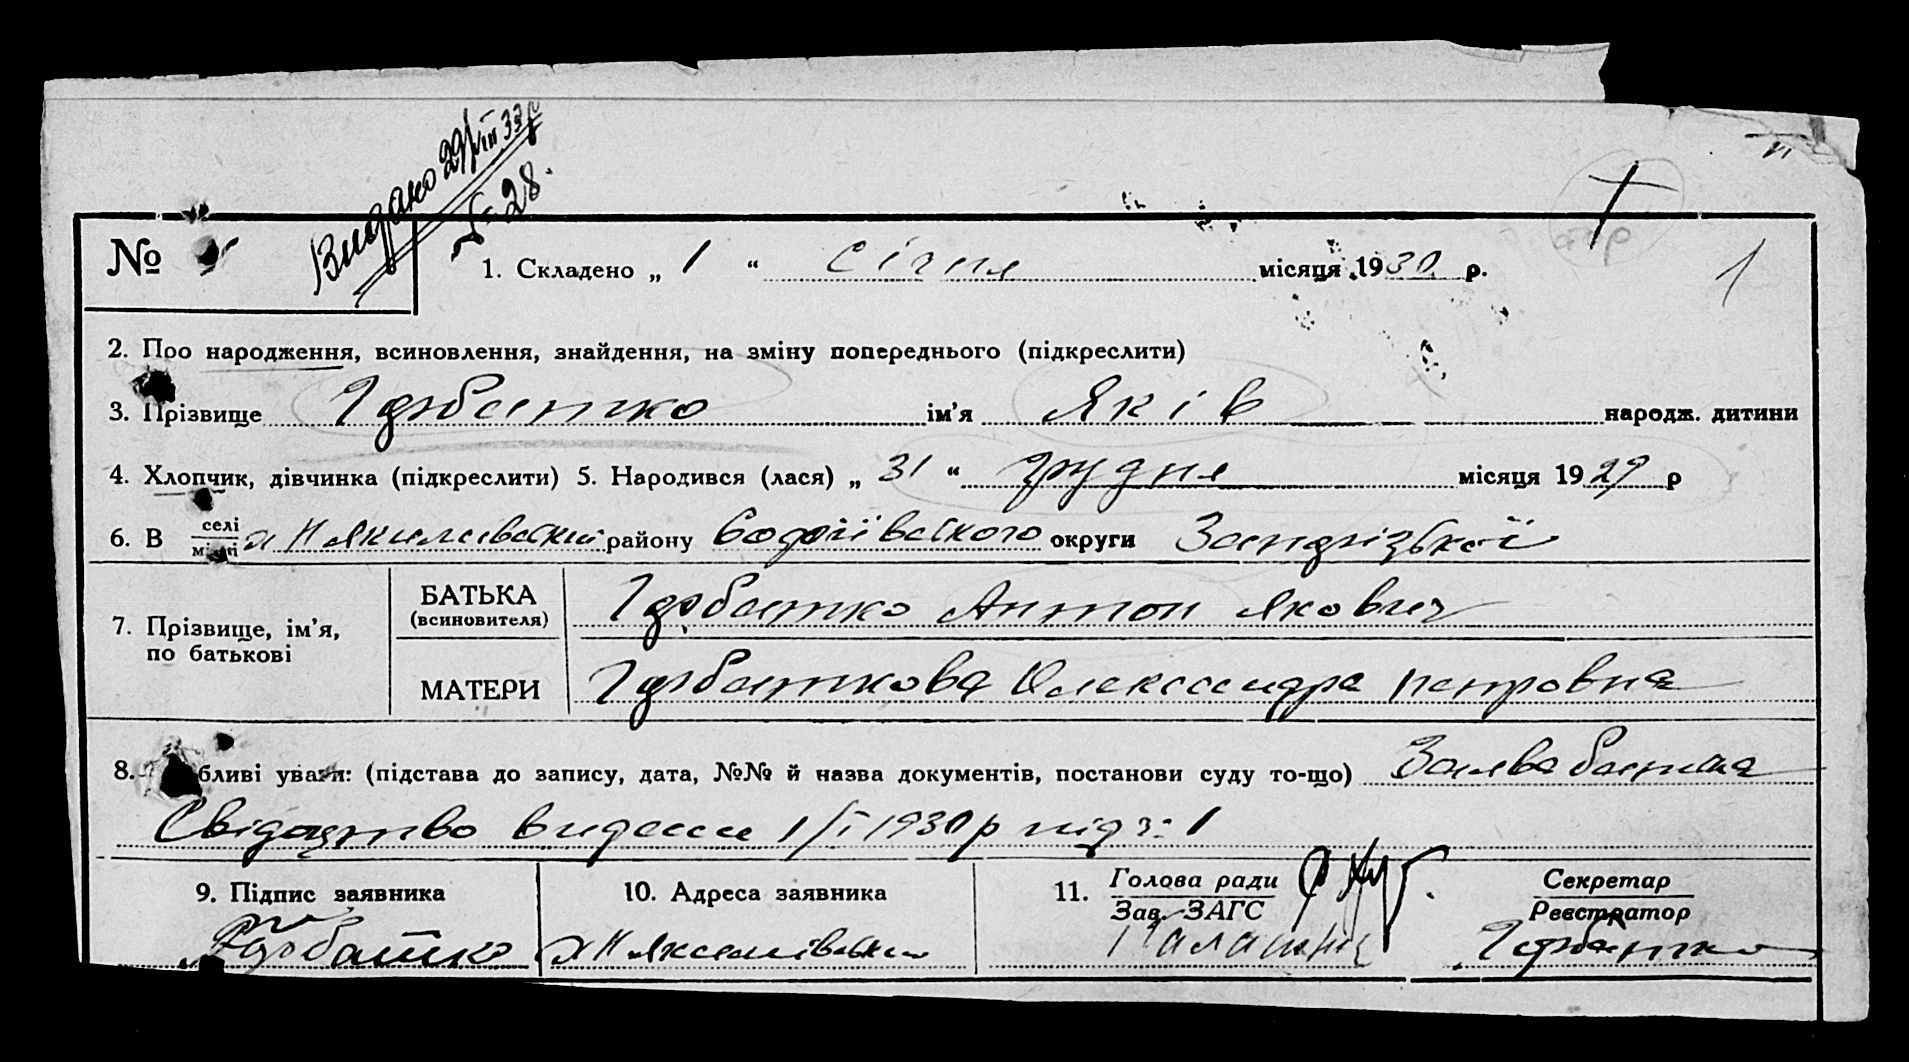 Видано 29/III 33р
№ 28.
№ 1. Складено „ 1 “ Січня місяця 1930 р.
1
2. Про народження, всиновлення, знайдення, на зміну попереднього (підкреслити)
3. Прізвище Горбатко ім’я Яків народж. дитини
4. Хлопчик, дівчинка (підкреслити) 5. Народився (лася) „ 31 “ грудня місяця 1929 р
6. В селі місті х району округи Запорізької
7. Прізвище, ім’я, по батькові
БАТЬКА (всиновителя) Горбатко Антон Якович
МАТЕРИ Горбаткова Олександра Петровна
8. бливі уваги: (підстава до запису, дата, №№ й назва документів, постанови суду то-що) Заява батька
Свідоцтво видане 1/I 1930р під з: 1
9. Підпис заявника 10. Адреса заявника 11. Голова ради Зав. ЗАГС Секретар Реєстратор
Горбатко х Горбатко